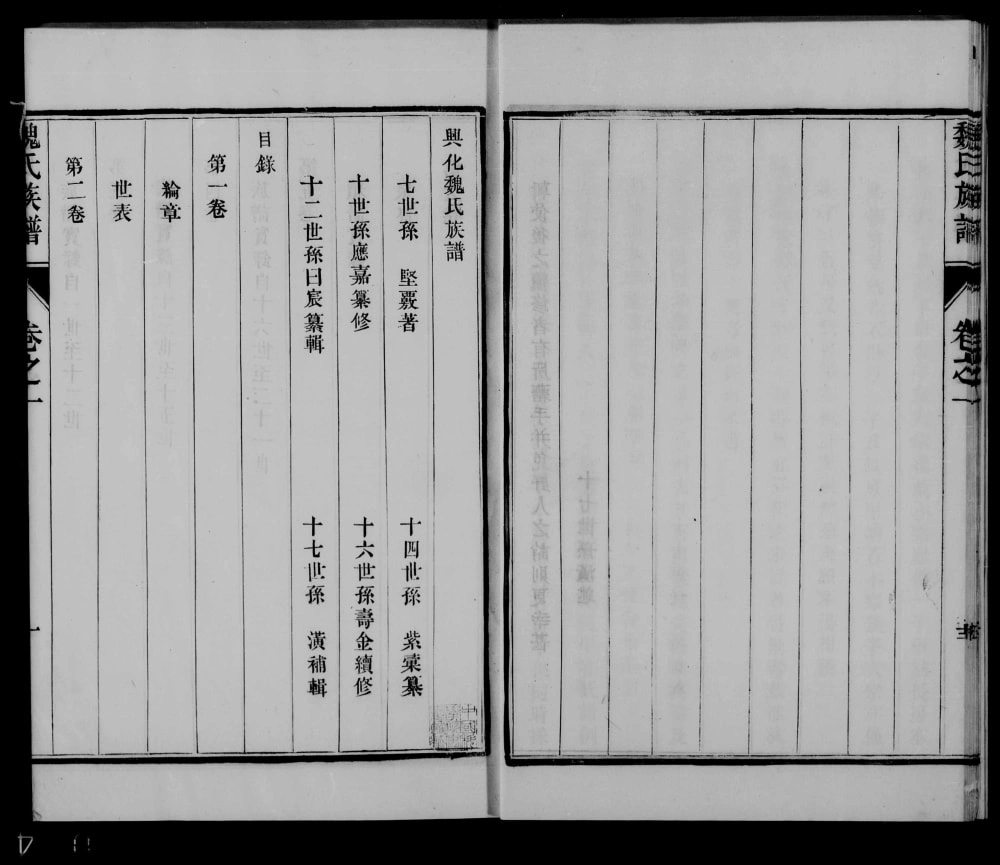 魏氏族譜
卷之一
興化魏氏族譜
七世孫 堅覈著 十四世孫 紫蘂纂
十世孫應嘉纂修 十六世孫壽金續修
十二世孫曰宸纂輯 十七世孫 潢補輯
目錄
第一卷
綸章
世表
第二卷
魏氏族譜
卷之一
一